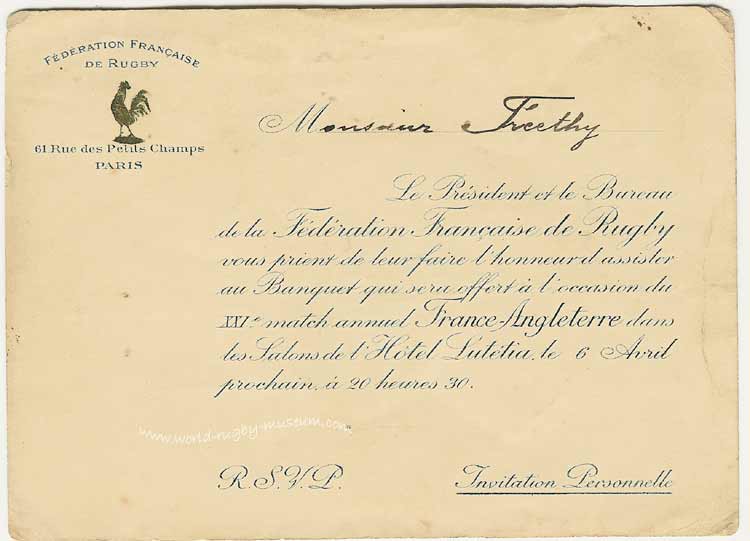 FÉDÉRATION FRANÇAISE
DE RUGBY
61 Rue des Petits Champs
PARIS
Monsieur Freethy
Le Président et le Bureau
de la Fédération Française de Rugby
vous prient de leur faire l'honneur d'assister
au Banquet qui sera offert à l'occasion du
XXIe match annuel France-Angleterre dans
les Salons de l'Hôtel Lutétia, le 6 Avril
prochain, à 20 heures 30.
www.world-rugby-museum.com
R.S.V.P.
Invitation Personnelle